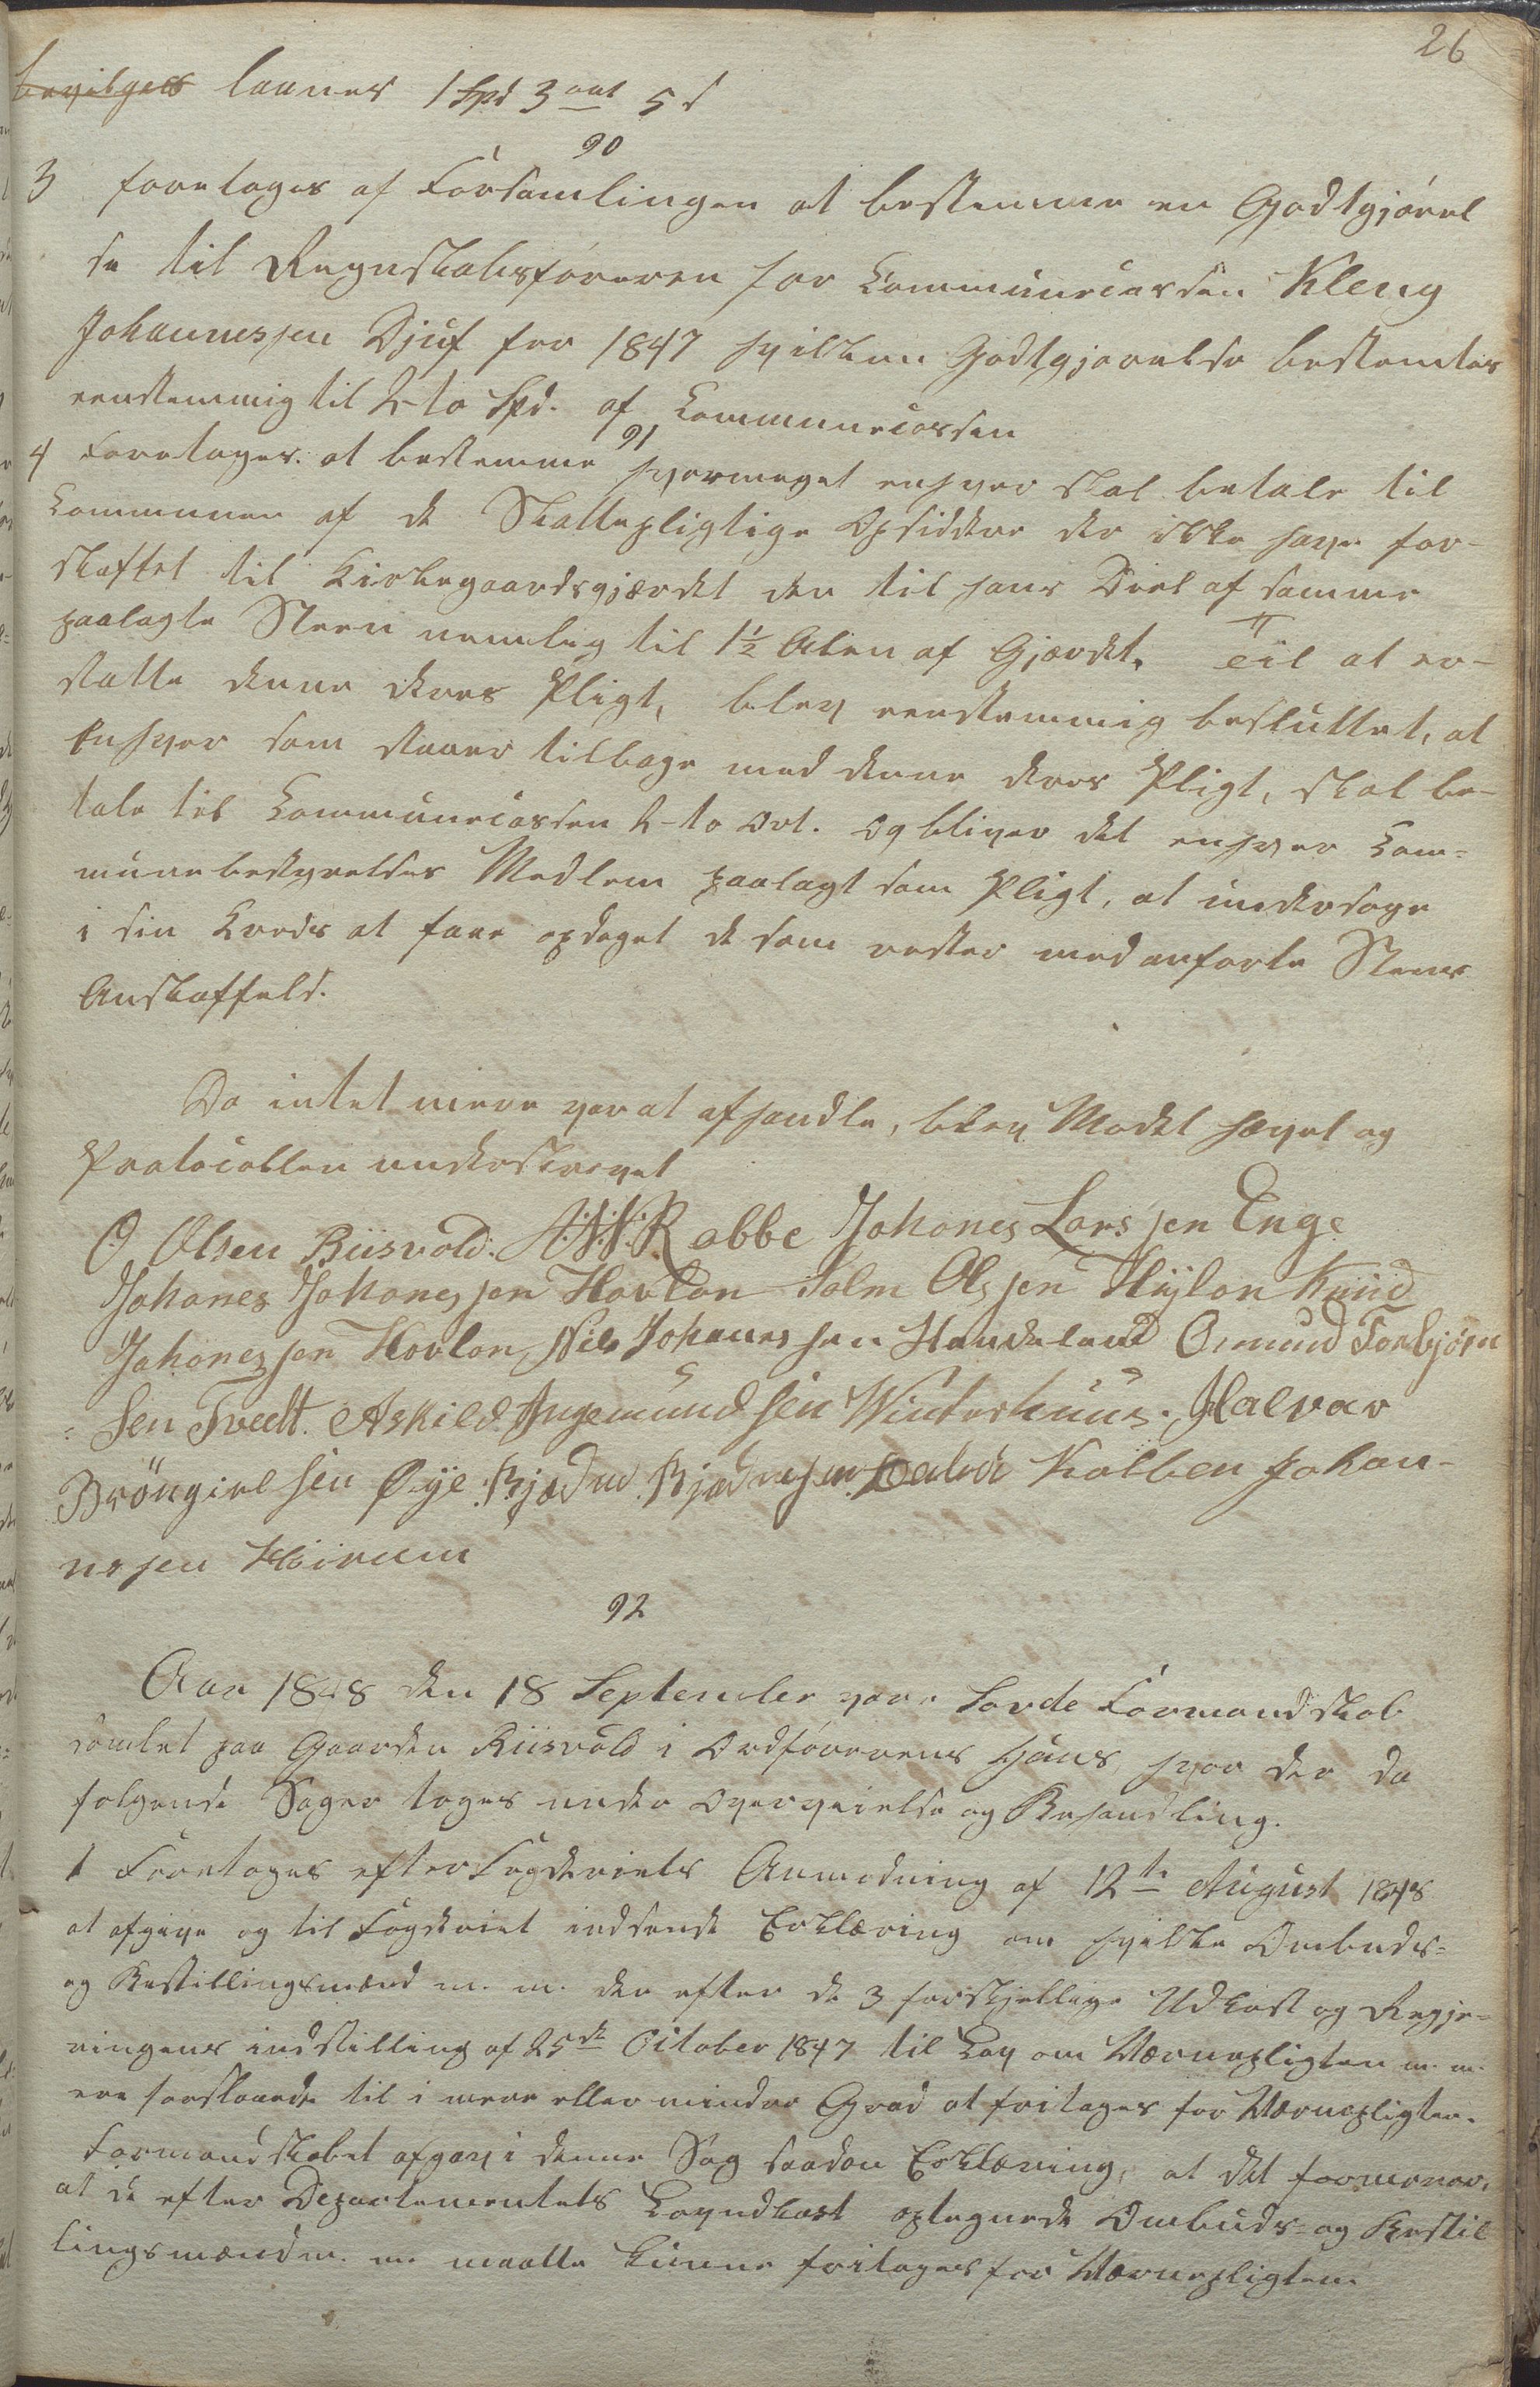 26
bevilges laanes 1 Spd 3 ort 5 s
90
3 foretages af Forsamlingen at bestemme en Godtgjörel
se til Regnskabsföreren for Communecassen Kleng
Johannessen Djuf for 1847 hvilken Godtgjörelse bestemtes
eenstemmig til 2 - to Spd. af Communecassen
91
4 Foretages at bestemme hvormeget enhver skal betale til
Communen af de Skattepligtige Opsiddere der ikke have for-
skaffet til Kirkegaardsgjærdet den til hans Deel af samme
paalagte Steen nemlig til 1½ Alen af Gjærdet. Til at er-
statte denne deres Pligt, blev eenstemmig besluttet, at
Enhver som staaer tilbage med denne deres Pligt, skal be-
tale til Communecassen 2 - to Ort. og bliver det enhver Com-
munebestyrelses Medlem paalagt som Pligt, at undersöge
i sin Kreds at faae opdaget de som rester med anförte Steens
Anskaffels.
Da intet mere var at afhandle, blev Mödet hævet og
Protocollen underskrevet
O Olsen Riisvold. Rabbe Johones Lorssen Enge
Johones Johonessen Hovlon Solm Olssen Hÿlon Knud
Johonessen Hovlon, Nils Johannessen Handeland Omund Torbjörn
= sen Tvedt. Askild Ingemundsen Winterhuus. Halvor
Bröngielsen Øÿe. Bjödne Bjödnesen Kolben Johan-
nesen Höinum
92
Aar 1848 den 18 September var Sovde Formandskab
samlet paa Gaarden Riisvold i Ordförerens Huus, hvor der da
fölgende Sager toges under Overveielse og Behandling.
1 Foretoges efter Fogderiets Anmodning af 12te August 1848
at afgive og til Fogderiet indsende Erklæring om hvilke Ombuds-
og Bestillingsmænd m. m. der efter de 3 forskjellige Udkast og Regje-
ringens indstilling af 25de October 1847 til Lov om Værnepligten m. m.
ere foreslaaede til i mere eller mindre Grad at fritages for Værnepligten.
Formandskabet afgav i denne Sag saadan Erklæring, at det formener,
at de efter Departementets Lovudkast optegnede Ombuds- og Bestil
lingsmænd m. m. maatte kunne fritages for Værnepligten